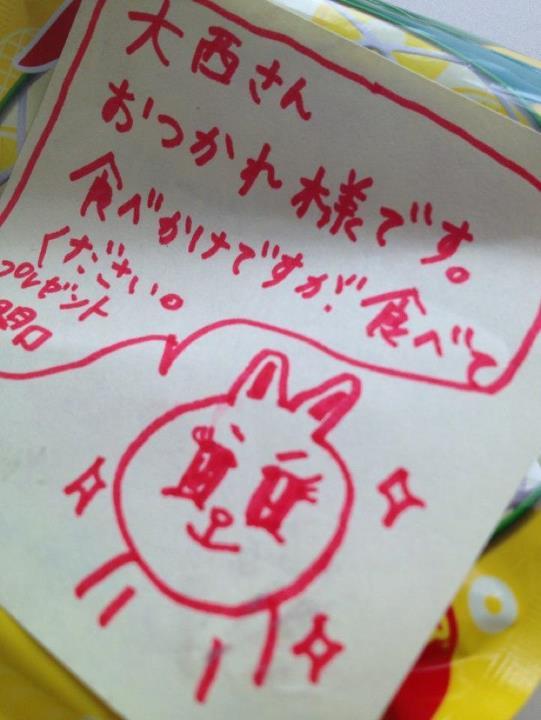 大西さん
おつかれ様です。
食べかけですが、食べて
ください。
プレゼント